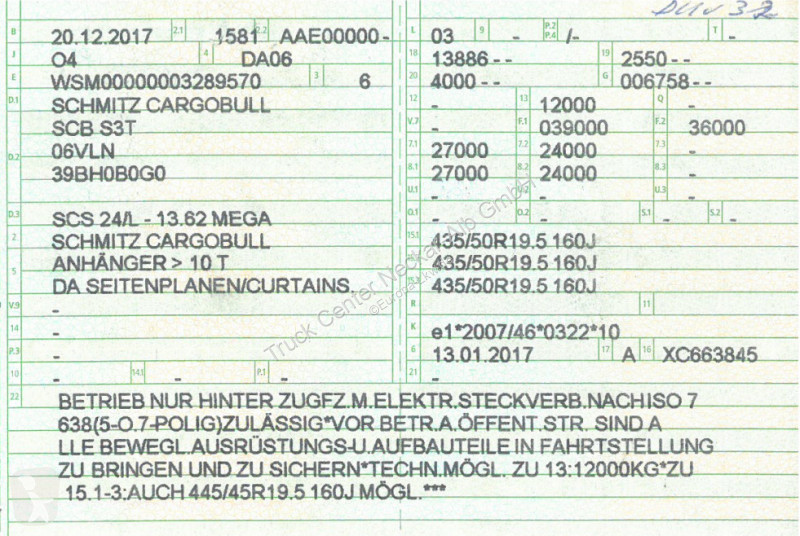 DUV 32
B 20.12.2017 2.1 1581 2.2 AAE00000-
J O4 4 DA06
E WSM00000003289570 3 6
D.1 SCHMITZ CARGOBULL
SCB S3T
D.2 06VLN
39BH0B0G0
D.3 SCS 24/L - 13.62 MEGA
2 SCHMITZ CARGOBULL
5 ANHÄNGER > 10 T
DA SEITENPLANEN/CURTAINS.
V.9 -
14 -
P.3 -
10 - 14.1 - P.1 -
L 03 9 - P.2 P.4 /- T -
18 13886-- 19 2550--
20 4000-- G 006758--
12 - 13 12000 Q -
V.7 - F.1 039000 F.2 36000
7.1 27000 7.2 24000 7.3 -
8.1 27000 8.2 24000 8.3 -
U.1 - U.2 - U.3 -
O.1 - O.2 - S.1 - S.2 -
15.1 435/50R19.5 160J
435/50R19.5 160J
435/50R19.5 160J
R 11
K e1*2007/46*0322*10
6 13.01.2017 17 A 16 XC663845
21 -
22 BETRIEB NUR HINTER ZUGFZ.M.ELEKTR.STECKVERB.NACH ISO 7
638(5-O.7-POLIG)ZULÄSSIG*VOR BETR.A.ÖFFENT.STR. SIND A
LLE BEWEGL.AUSRÜSTUNGS-U.AUFBAUTEILE IN FAHRTSTELLUNG
ZU BRINGEN UND ZU SICHERN*TECHN.MÖGL. ZU 13:12000KG*ZU
15.1-3:AUCH 445/45R19.5 160J MÖGL.***
Truck Center Neckar Alb GmbH